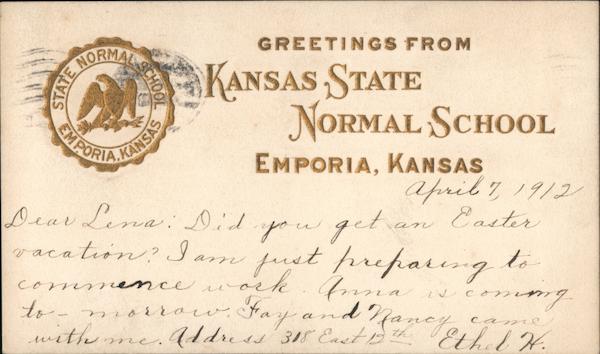 STATE NORMAL SCHOOL
EMPORIA, KANSAS
GREETINGS FROM
KANSAS STATE
NORMAL SCHOOL
EMPORIA, KANSAS
April 7, 1912
Dear Lena: Did you get an Easter
vacation? I am just preparing to
commence work. Anna is coming
to-morrow. Fay and Nancy came
with me. Address 318 East 12th Ethel H.